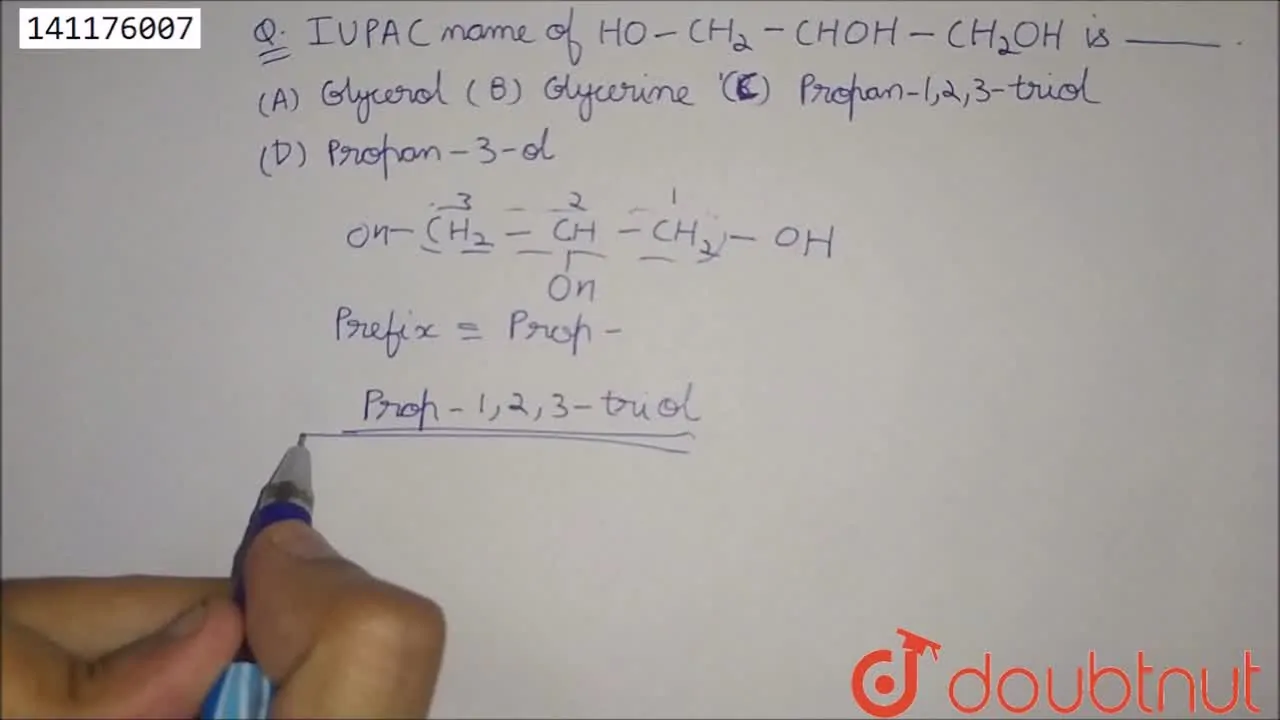 141176007
Q. IUPAC name of HO-CH2-CHOH-CH2OH is ____.
(A) Glycerol (B) Glycerine (C) Propan-1,2,3-triol
(D) Propan-3-ol
3 2 1
OH-CH2-CH-CH2-OH
OH
Prefix = Prop-
Prop-1,2,3-triol
doubtnut